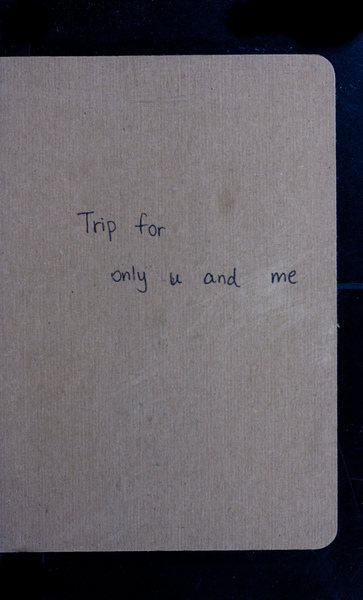 Trip for
only u and me